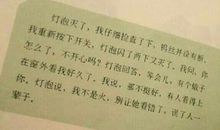 灯泡灭了，我仔细检查了下，钨丝并没有断，
我重新按下开关，灯泡闪了两下又灭了，我问，你
怎么了，不开心吗？灯泡回答，等会儿，有个蛾子
在窗外看我好久了，我说，那不挺好，有人看得上
你，灯泡说，我不是火，别让她看错了，误了人一
辈子。